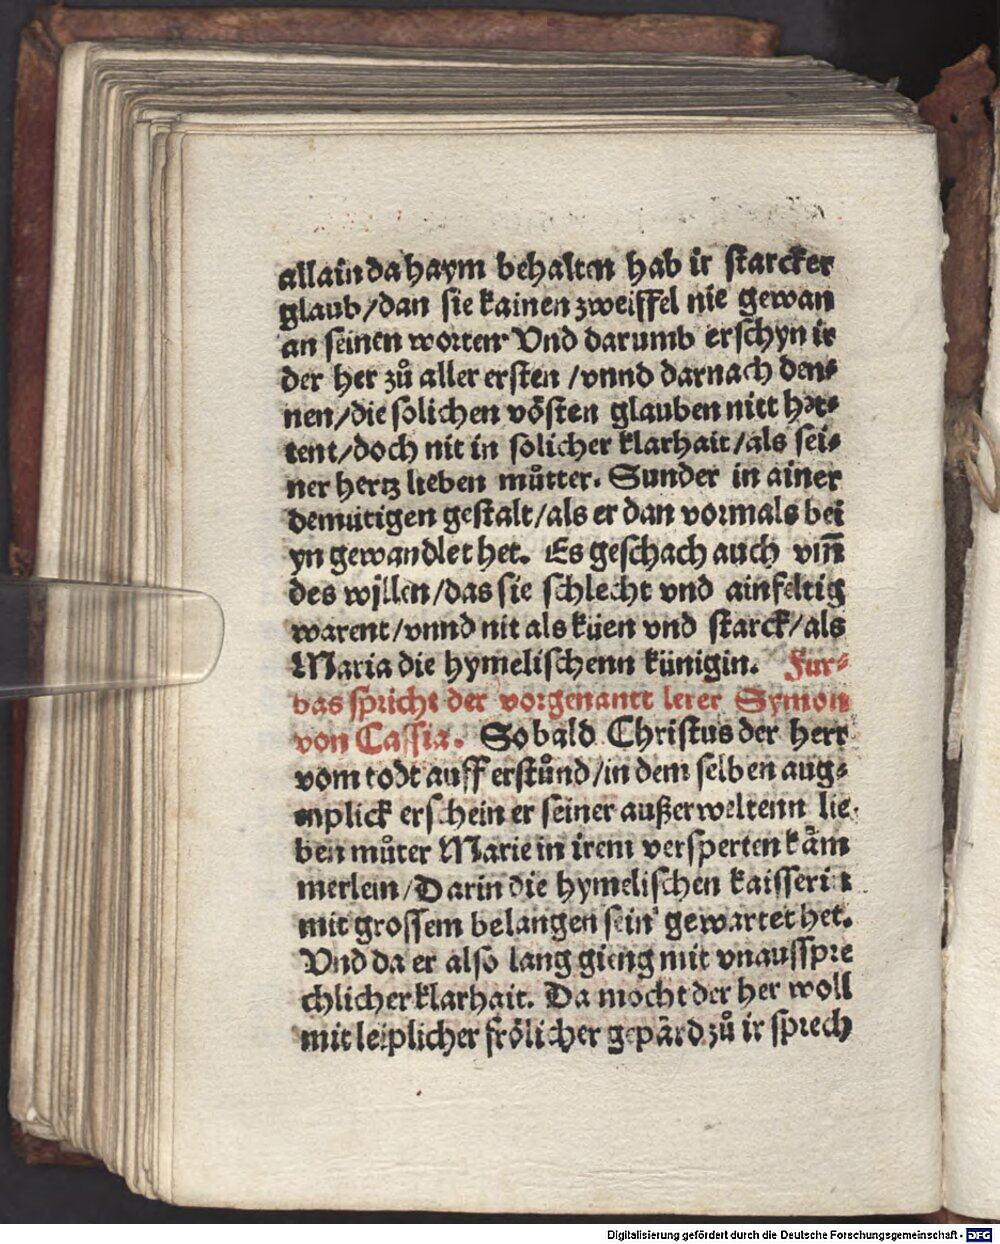 allain da haym behalten hab ir starcker
glaub/dan sie kainen zweiffel nie gewan
an seinen worten Vnd darumb erschyn ir
der her zů aller ersten /vnnd darnach den⸗
nen/die solichen vösten glauben nitt het⸗
tent/doch nit in solicher klarhait/als sei⸗
ner hertz lieben můtter. Sunder in ainer
demütigen gestalt/als er dan vormals bei
yn gewandlet het. Es geschach auch vm̄
des willen/das sie schlecht vnd ainfeltig
warent/vnnd nit als küen vnd starck/als
Maria die hymelischenn künigin. Fur⸗
bas spricht der vorgenantt lerer Symon
von Cassia. So bald Christus der herr
vom todt auff erstůnd/in dem selben aug⸗
mplick erschein er seiner außerweltenn lie⸗
ben můter Marie in irem versperten käm
merlein/Darin die hymelischen kaisserin
mit grossem belangen sein' gewartet het.
Vnd da er also lang gieng mit vnausspre
chlicher klarhait. Da mocht der her woll
mit leiplicher frölicher gepärd zů ir sprech
Digitalisierung gefördert durch die Deutsche Forschungsgemeinschaft - DFG